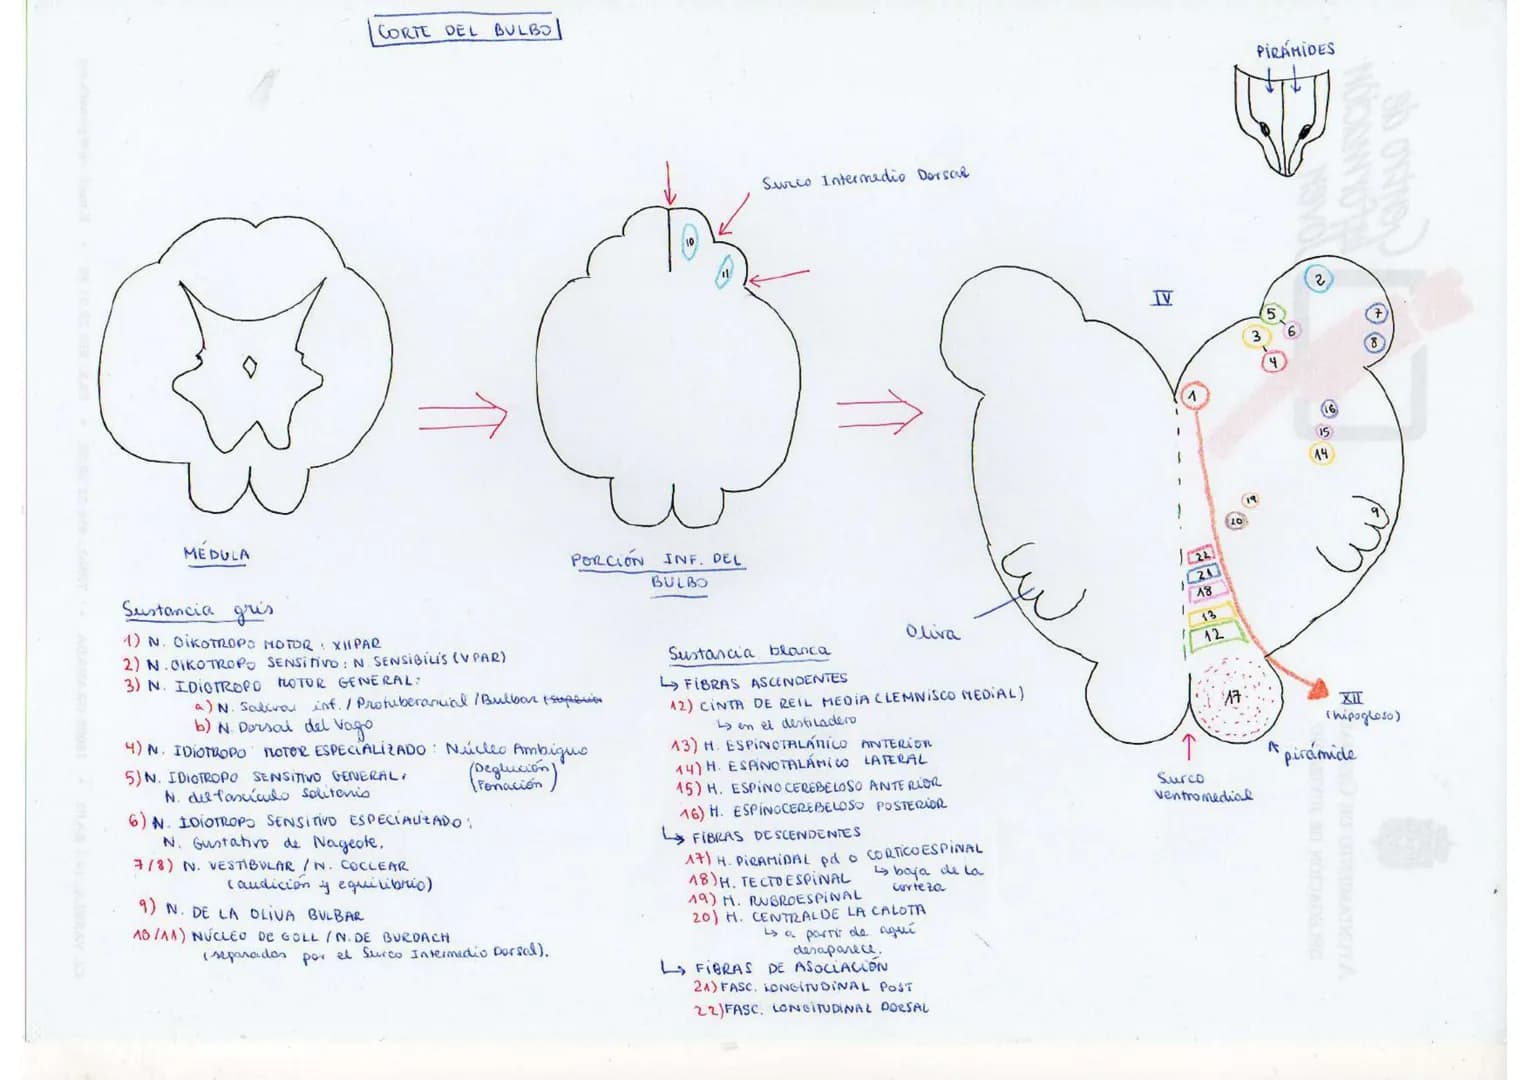 CORTE DEL BULBO
PIRÁMIDES
Surco Intermedio Dorsal
10
11
IV
2
5
7
3
6
8
4
1
16
15
14
19
9
20
22
21
18
13
12
17
MÉDULA
PORCIÓN INF. DEL
BULBO
Oliva
XII
(hipogloso)
pirámide
Surco
ventromedial
Sustancia gris
1) N. OIKOTROPO MOTOR: XII PAR
2) N. OIKOTROPO SENSITIVO: N. SENSIBILIS (V PAR)
3) N. IDIOTROPO MOTOR GENERAL:
a) N. Salival inf. / Protuberancial / Bulbar
b) N. Dorsal del Vago
4) N. IDIOTROPO MOTOR ESPECIALIZADO: Núcleo Ambiguo
(Deglución)
(Fonación)
5) N. IDIOTROPO SENSITIVO GENERAL:
N. del Fascículo Solitario
6) N. IDIOTROPO SENSITIVO ESPECIALIZADO:
N. Gustativo de Nageote.
7/8) N. VESTIBULAR / N. COCLEAR
(audición y equilibrio)
9) N. DE LA OLIVA BULBAR
10/11) NÚCLEO DE GOLL / N. DE BURDACH
(separados por el Surco Intermedio Dorsal).
Sustancia blanca
↳ FIBRAS ASCENDENTES
12) CINTA DE REIL MEDIA (LEMNISCO MEDIAL)
↳ en el destiladero
13) H. ESPINOTALÁMICO ANTERIOR
14) H. ESPINOTALÁMICO LATERAL
15) H. ESPINOCEREBELOSO ANTERIOR
16) H. ESPINOCEREBELOSO POSTERIOR
↳ FIBRAS DESCENDENTES
17) H. PIRAMIDAL pd o CORTICOESPINAL
↳ baja de la
corteza
18) H. TECTOESPINAL
19) H. RUBROESPINAL
20) H. CENTRAL DE LA CALOTA
↳ a partir de aquí
desaparece.
↳ FIBRAS DE ASOCIACIÓN
21) FASC. LONGITUDINAL POST
22) FASC. LONGITUDINAL DORSAL